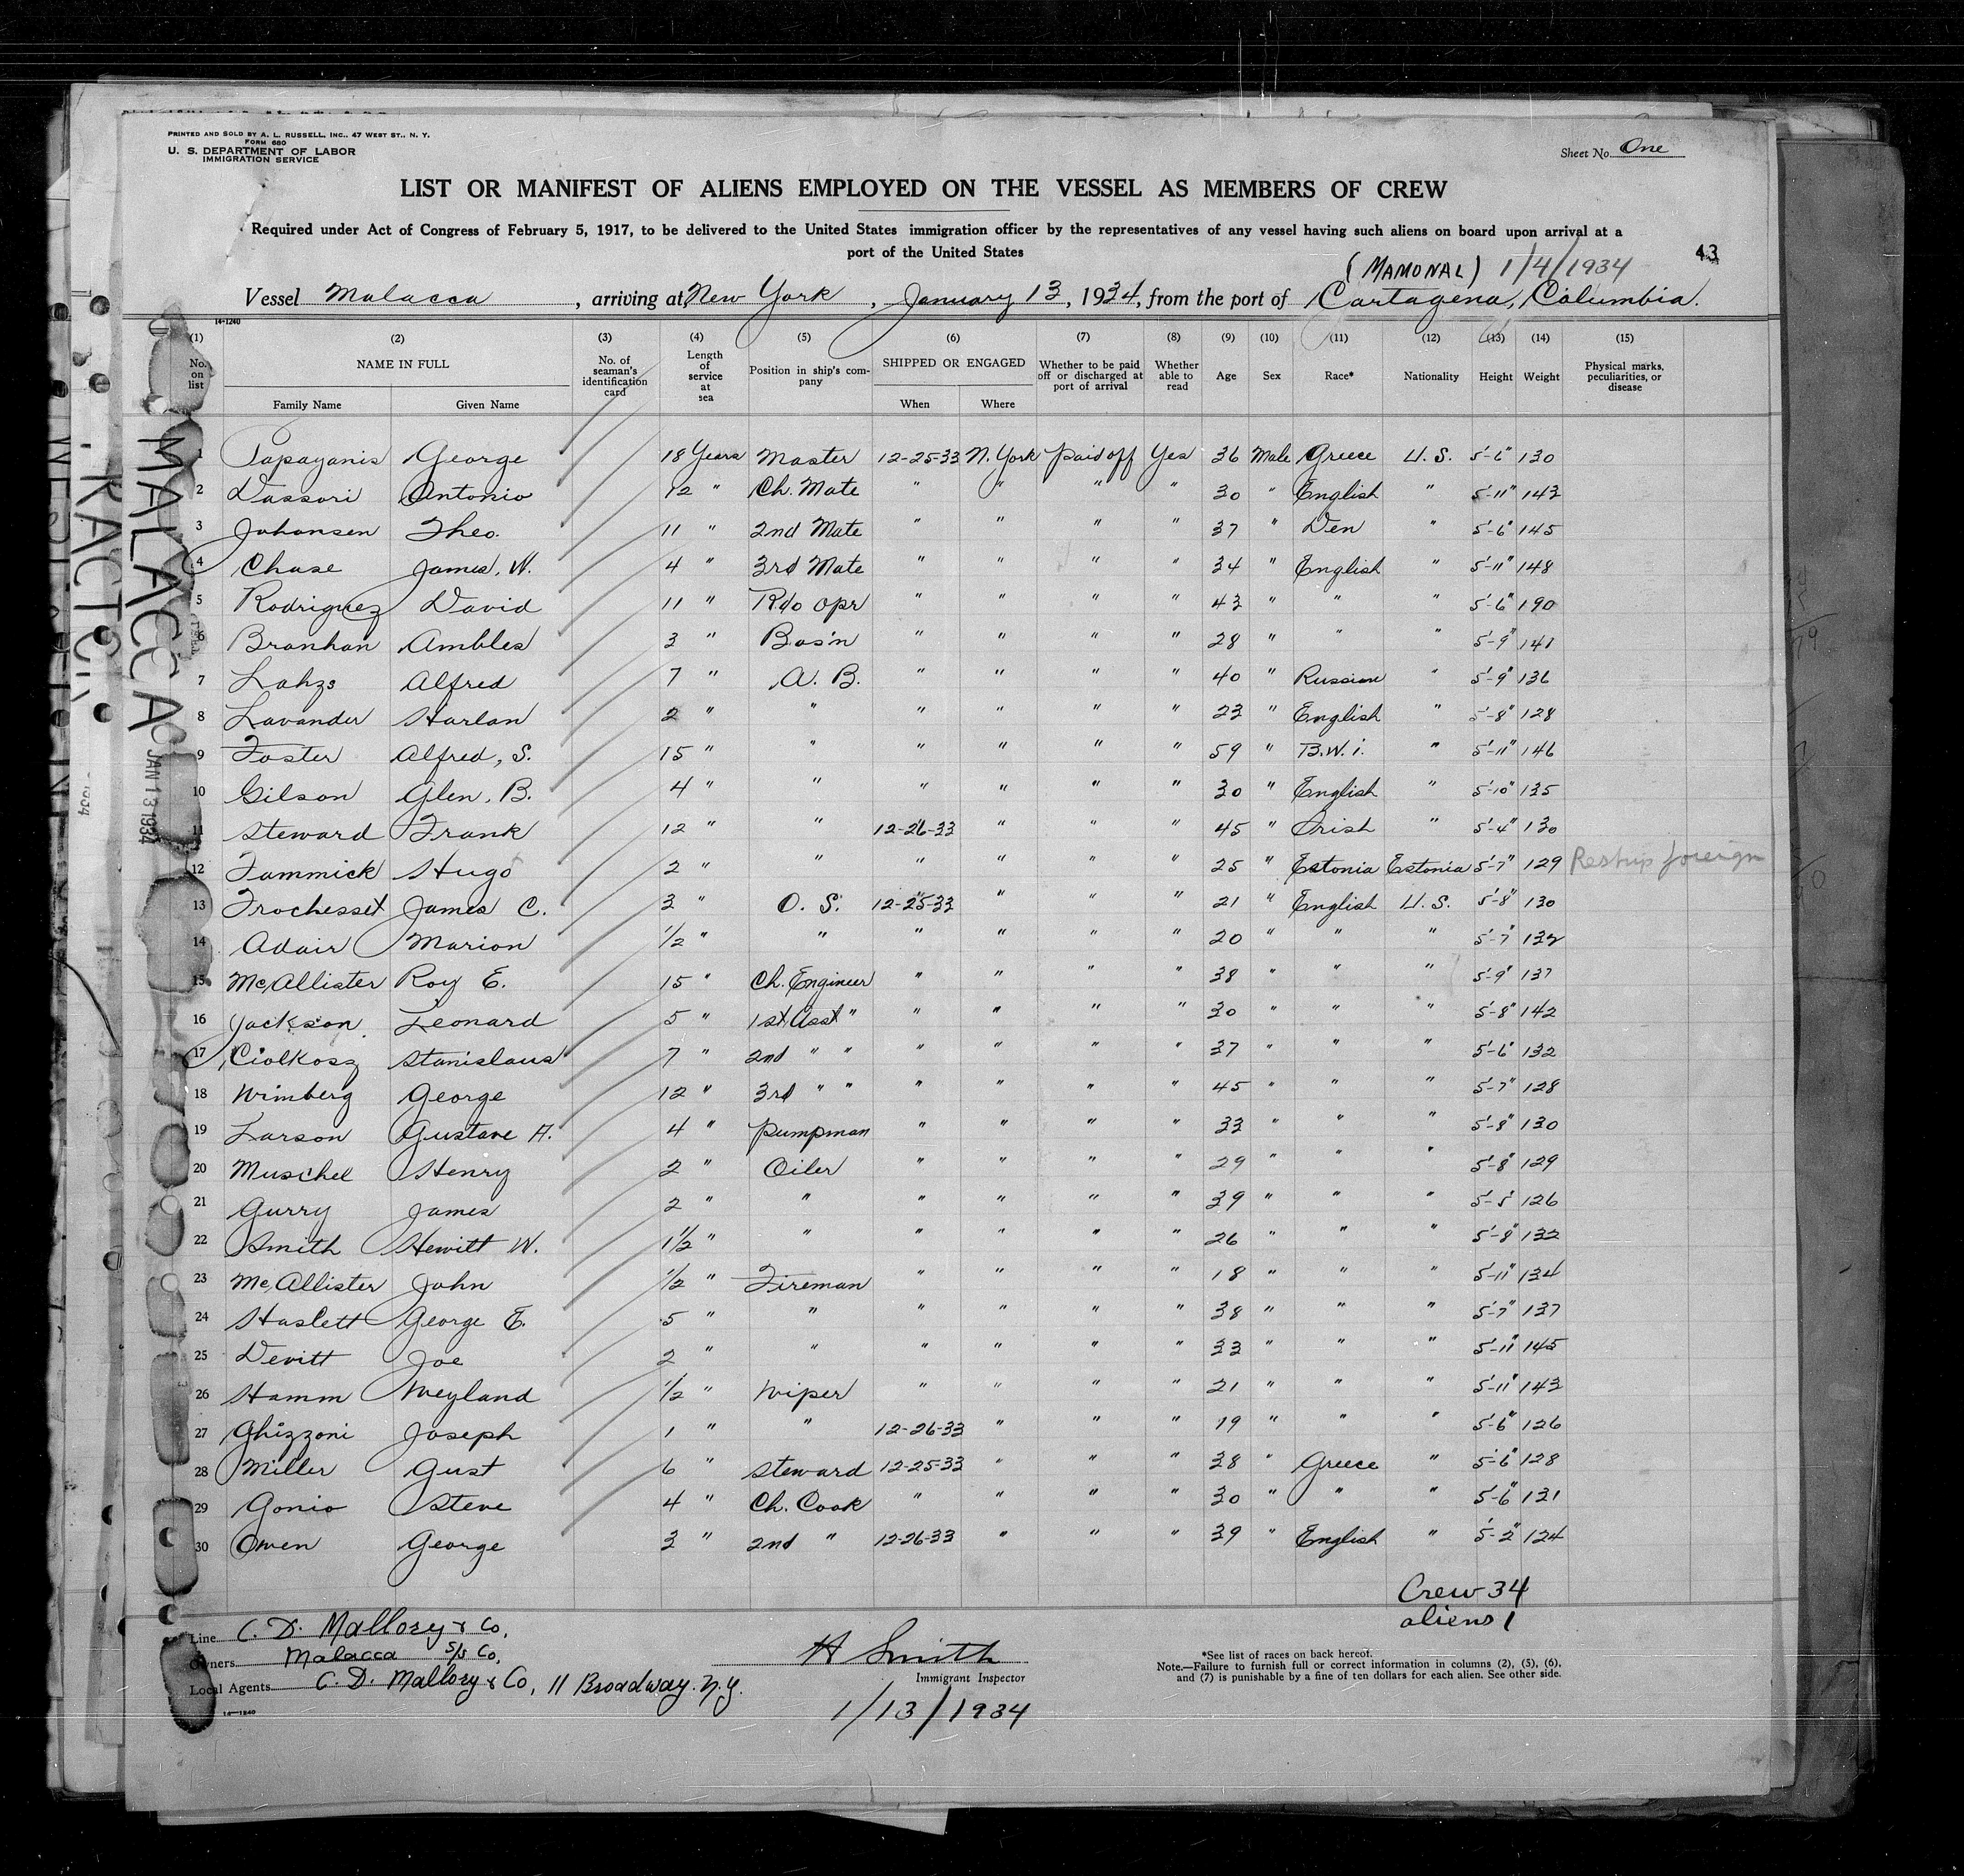 PRINTED AND SOLD BY A. L. RUSSELL, INC., 47 WEST ST., N. Y.
FORM 680
U. S. DEPARTMENT OF LABOR
IMMIGRATION SERVICE
Sheet No. One
LIST OR MANIFEST OF ALIENS EMPLOYED ON THE VESSEL AS MEMBERS OF CREW
Required under Act of Congress of February 5, 1917, to be delivered to the United States immigration officer by the representatives of any vessel having such aliens on board upon arrival at a
port of the United States
43
(MAMONAL) 1/4/1934
Vessel Malacca, arriving at New York, January 13, 1934, from the port of Cartagena, Columbia.
14-1240
(1) (2) (3) (4) (5) (6) (7) (8) (9) (10) (11) (12) (13) (14) (15)
No. on list NAME IN FULL Family Name Given Name No. of seaman's identification card Length of service at sea Position in ship's company SHIPPED OR ENGAGED When Where Whether to be paid off or discharged at port of arrival Whether able to read Age Sex Race* Nationality Height Weight Physical marks, peculiarities, or disease
1 Papayanis George 18 Years Master 12-25-33 N. York Paid off Yes 36 Male Greece U.S. 5'-6" 130
2 Dassori Antonio 12 " Ch. Mate " " " " 30 " English " 5'-11" 143
3 Johansen Theo. 11 " 2nd Mate " " " " 37 " Den " 5'-6" 145
4 Chase James, W. 4 " 3rd Mate " " " " 34 " English " 5'-11" 148
5 Rodriguez David 11 " Rdo Opr " " " " 43 " " " 5'-6" 190
6 Branhan Ambles 3 " Bos'n " " " " 28 " " " 5'-9" 141
7 Lahzs Alfred 7 " A. B. " " " " 40 " Russian " 5'-9" 136
8 Lavander Harlan 2 " " " " " " 23 " English " 5'-8" 128
9 Foster Alfred, S. 15 " " " " " " 59 " B.W.i. " 5'-11" 146
10 Gilson Glen, B. 4 " " " " " " 30 " English " 5'-10" 135
11 Steward Frank 12 " " 12-26-33 " " " 45 " Irish " 5'-4" 130
12 Tammick Hugo 2 " " " " " " 25 " Estonia Estonia 5'-7" 129 Reship foreign
13 Trochesset James C. 3 " O. S. 12-25-33 " " " 21 " English U.S. 5'-8" 130
14 Adair Marion 1/2 " " " " " " 20 " " " 5'-7" 132
15 McAllister Roy E. 15 " Ch. Engineer " " " " 38 " " " 5'-9" 137
16 Jackson Leonard 5 " 1st Asst " " " " " 30 " " " 5'-8" 142
17 Ciolkosz Stanislaus 7 " 2nd " " " " " " 37 " " " 5'-6" 132
18 Wimberg George 12 " 3rd " " " " " " 45 " " " 5'-7" 128
19 Larson Gustave A. 4 " Pumpman " " " " 33 " " " 5'-8" 130
20 Muschel Henry 2 " Oiler " " " " 29 " " " 5'-8" 129
21 Gurry James 2 " " " " " " 39 " " " 5'-5" 126
22 Smith Hewitt W. 1 1/2 " " " " " " 26 " " " 5'-8" 132
23 McAllister John 1/2 " Fireman " " " " 18 " " " 5'-11" 134
24 Haslett George E. 5 " " " " " " 38 " " " 5'-7" 137
25 Devitt Joe 2 " " " " " " 33 " " " 5'-11" 145
26 Hamm Weyland 1/2 " Wiper " " " " 21 " " " 5'-11" 143
27 Ghizzoni Joseph 1 " " 12-26-33 " " " 19 " " " 5'-6" 126
28 Miller Gust 6 " Steward 12-25-33 " " " 38 " Greece " 5'-6" 128
29 Gonio Steve 4 " Ch. Cook " " " " 30 " " " 5'-6" 131
30 Owen George 3 " 2nd " 12-26-33 " " " 39 " English " 5'-2" 124
Crew 34
aliens 1
Line C. D. Mallory & Co.
Owners Malacca S/S Co.
Local Agents C. D. Mallory & Co, 11 Broadway. N.Y.
H Smith
Immigrant Inspector
1/13/1934
*See list of races on back hereof.
Note.—Failure to furnish full or correct information in columns (2), (5), (6),
and (7) is punishable by a fine of ten dollars for each alien. See other side.
14-1240
MALACCA
JAN 13 1934